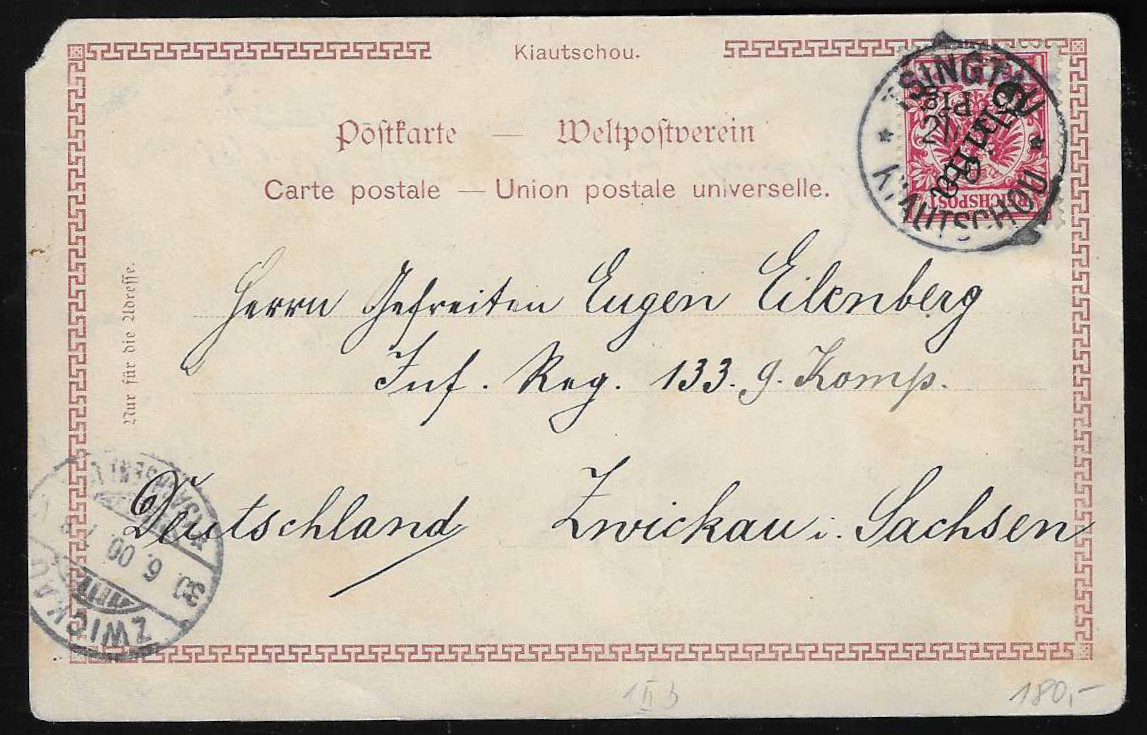 Kiautschou.
Postkarte — Weltpostverein
Carte postale — Union postale universelle.
TSINGTAU
KIAUTSCHOU
REICHSPOST
Nur für die Adresse.
Herrn Gefreiten Eugen Eilenberg
Inf. Reg. 133. 9. Komp.
Deutschland Zwickau i. Sachsen
ZWICKAU
6. 00.
1 II b
180,-